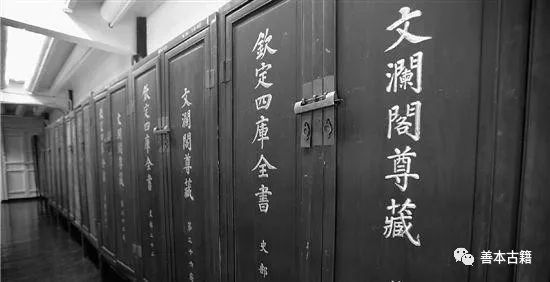 文瀾閣尊藏
欽定四庫全書 史部
文瀾閣尊藏
欽定四庫全書
文瀾閣尊藏
善本古籍